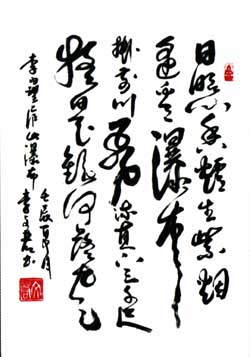 日照香爐生紫烟
遥看瀑布
掛前川飛流直下三千尺
疑是銀河落九天
李白望廬山瀑布
壬辰 月李文 书